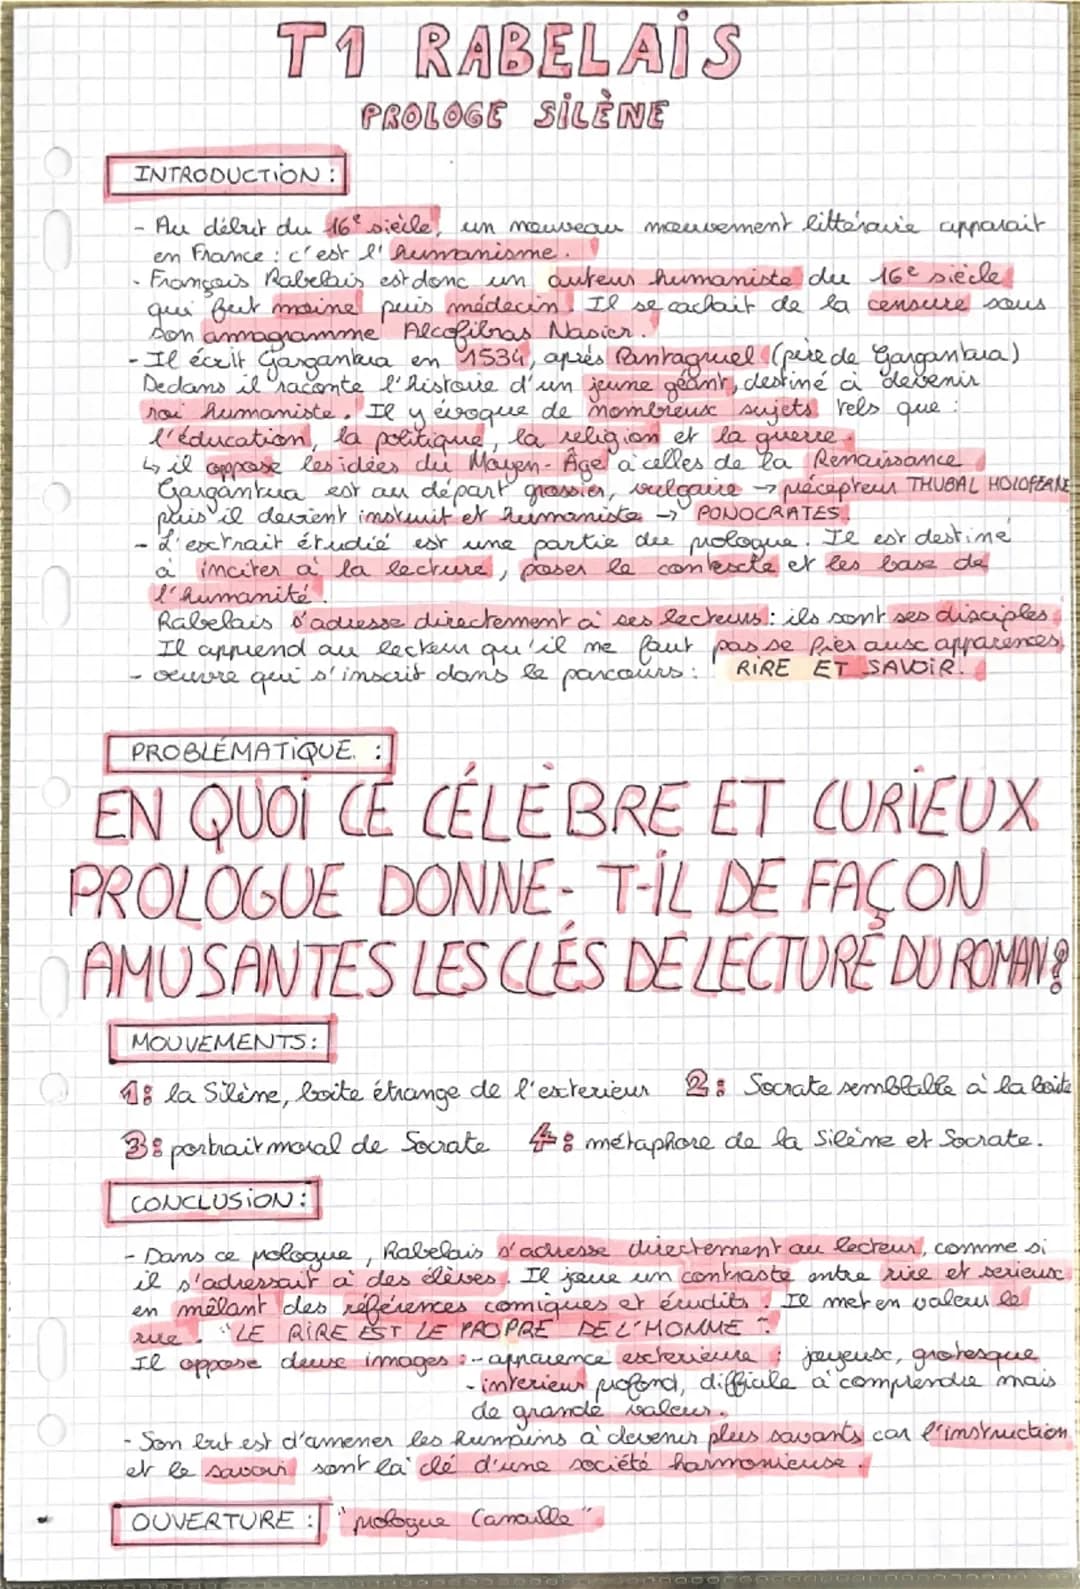 T1 RABELAIS
PROLOGE SILÈNE
INTRODUCTION :
- Au début du 16e siècle, un nouveau mouvement littéraire apparait
en France : c'est l'humanisme.
- François Rabelais est donc un auteur humaniste du 16e siècle
qui fut moine puis médecin. Il se cachait de la censure sous
son annagramme Alcofibras Nasier.
- Il écrit Gargantua en 1534, après Pantagruel (père de Gargantua)
Dedans il raconte l'histoire d'un jeune géant, destiné à devenir
roi humaniste. Il y évoque de nombreux sujets tels que :
l'éducation, la politique, la religion et la guerre.
↳ il oppose les idées du Moyen-Âge à celles de la Renaissance
Gargantua est au départ grossier, vulgaire → précepteur THUBAL HOLOFERNE
puis il devient instruit et humaniste → PONOCRATES.
- L'extrait étudié est une partie du prologue. Il est destiné
à inciter à la lecture, poser le contexte et les base de
l'humanité.
Rabelais s'adresse directement à ses lecteurs : ils sont ses disciples.
Il apprend au lecteur qu'il ne faut pas se fier aux apparences.
- oeuvre qui s'inscrit dans le parcours : RIRE ET SAVOIR.
PROBLÉMATIQUE :
EN QUOI CE CÉLÈBRE ET CURIEUX
PROLOGUE DONNE-T-IL DE FAÇON
AMUSANTES LES CLÉS DE LECTURE DU ROMAN ?
MOUVEMENTS :
1 : la Silène, boite étrange de l'exterieur 2 : Socrate semblable à la boite
3 : portrait moral de Socrate 4 : métaphore de la Silène et Socrate.
CONCLUSION :
- Dans ce prologue, Rabelais s'adresse directement au lecteur, comme si
il s'adressait à des élèves. Il joue un contraste entre rire et serieux
en mêlant des références comiques et érudits. Il met en valeur le
rire. "LE RIRE EST LE PROPRE DE L'HOMME".
Il oppose deux images : - apparence exterieure : joyeux, grotesque
- interieur profond, difficile à comprendre mais
de grande valeur.
- Son but est d'amener les humains à devenir plus savants car l'instruction
et le savoir sont la clé d'une société harmonieuse.
OUVERTURE : "prologue Canaille"